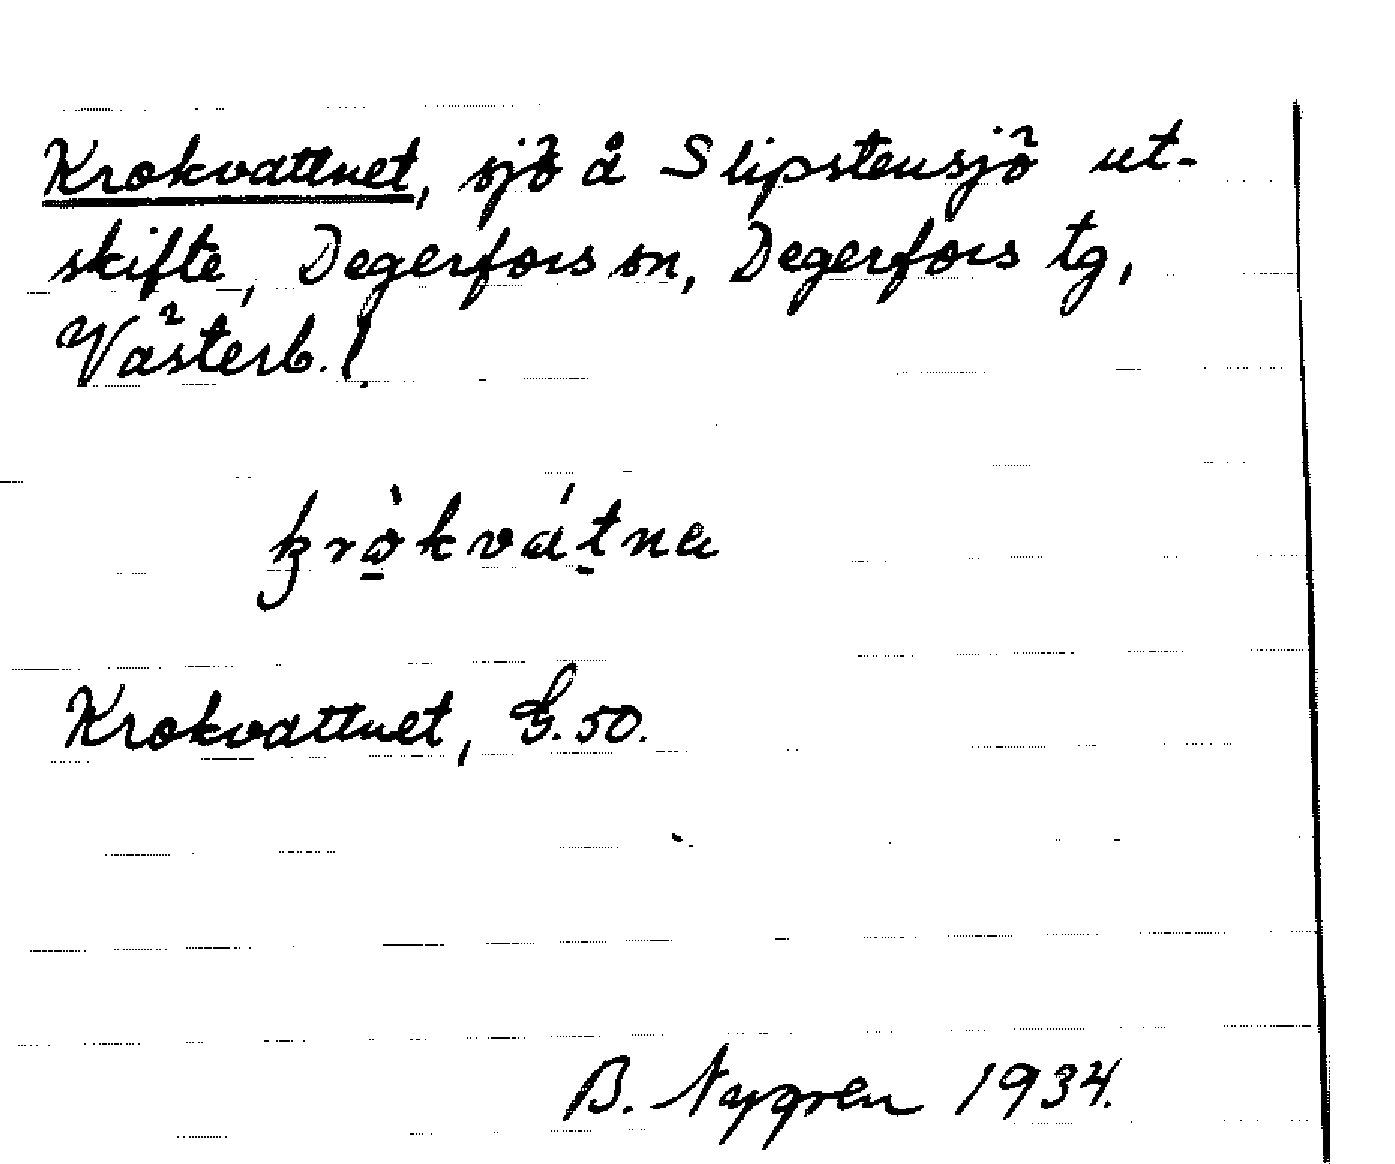 Krokvattnet, sjö å Slipstensjö ut-
skifte, Degerfors sn, Degerfors tg,
Västerb. l.
kròkvátna
Krokvattnet, G. 50.
B. Nygren 1934.